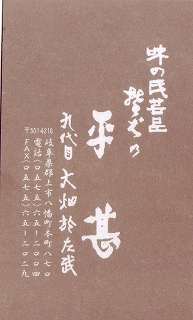 味の民芸品
そばの
平甚
九代目 大畑於左武
〒5014216
岐阜県郡上市八幡町本町八七〇
電話(〇五七五)六五-二〇〇四
FAX(〇五七五)六五-二〇二九